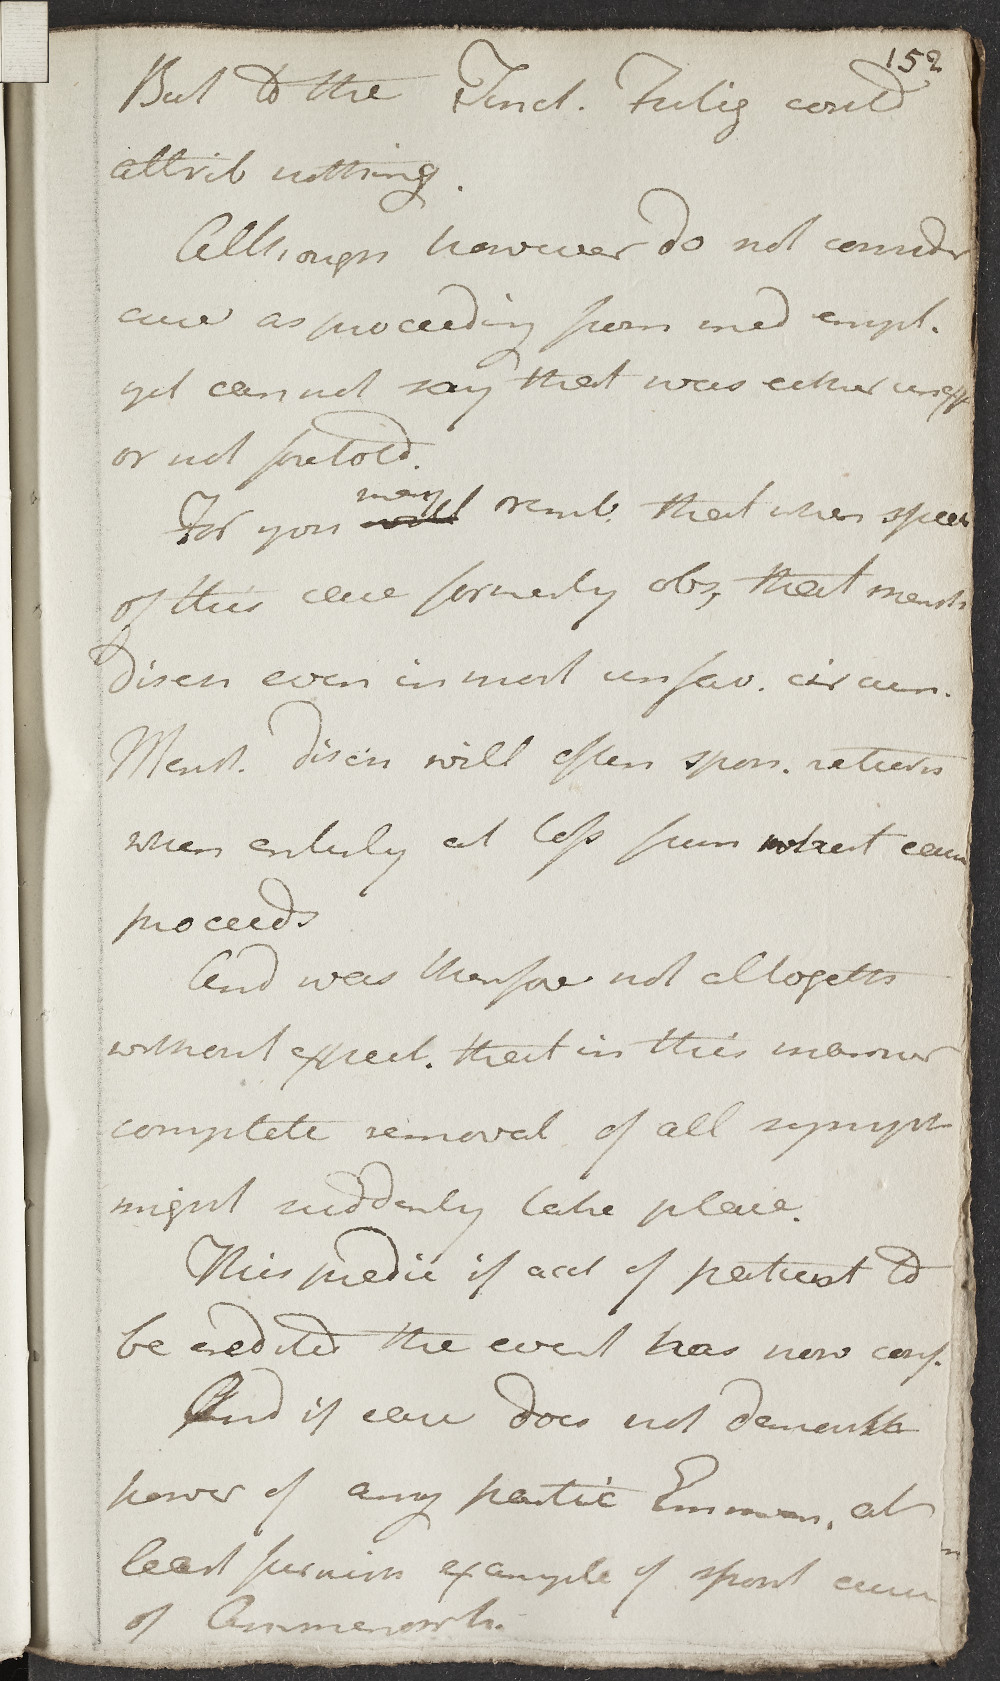 152
But to the Tinct. Fulig could
attrib nothing.
Although however do not consider
cure as proceeding from med empl.
yet cannot say that was either unexp
or not foretold.
may
For you will remb. that when speak
of this case formerly obs, that mensth
discn even in most unfav. circum.
Menst. discn will often spon. return
when entirely at loss from what caus
proceeds
And was therefore not altogeth
without expect. that in this manner
complete removal of all sympt
might suddenly take place.
This predic if acct of patient to
be credited the event has now conf.
And if case does not demonstr
power of any partic Emmen. at
least furnish example of spont cure
of Ammenorrh.